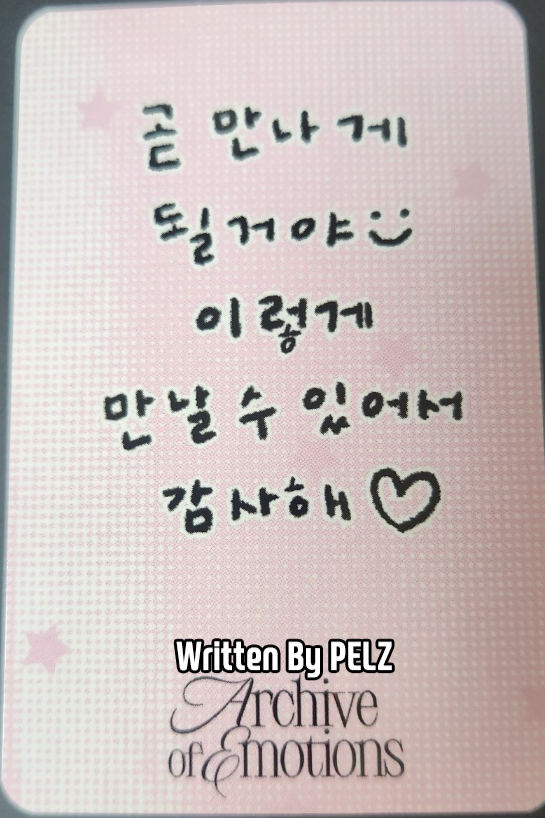 곧 만나게
될거야
이렇게
만날 수 있어서
감사해♡
Written By PELZ
Archive
of Emotions